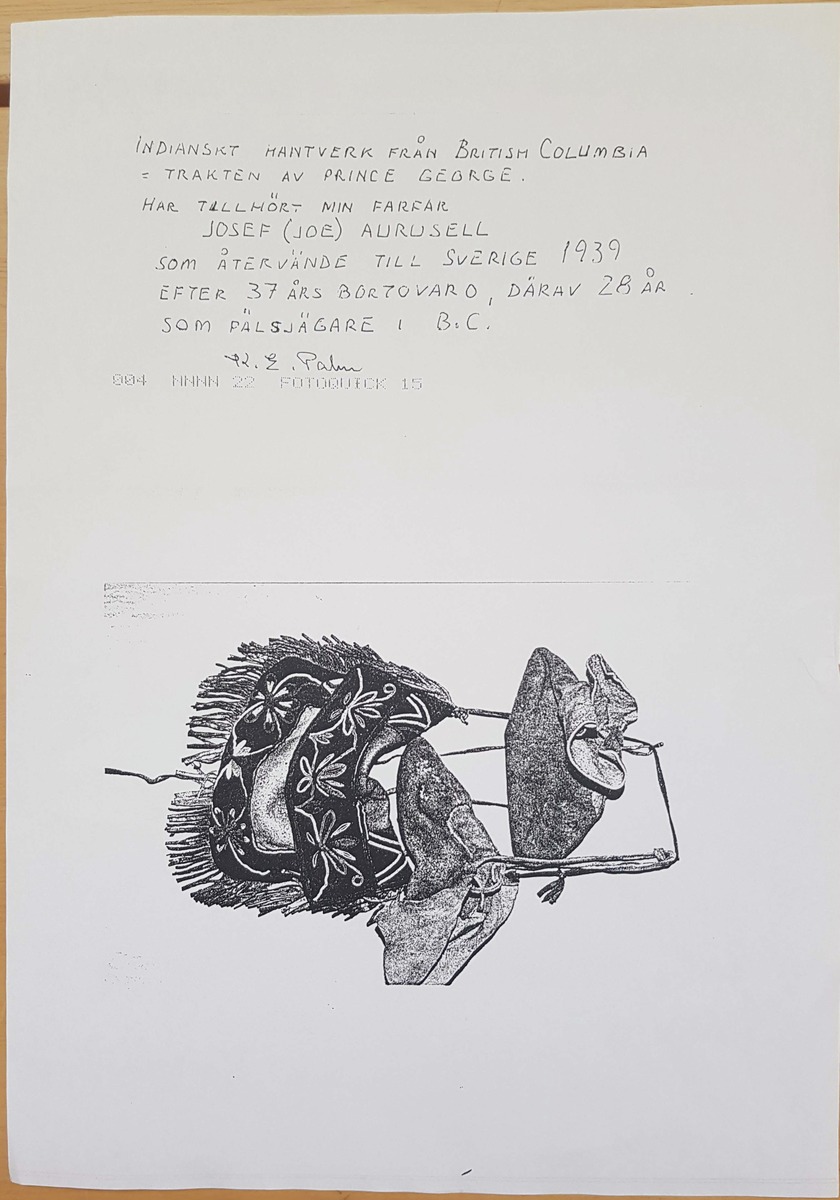 INDIANSKT HANTVERK FRÅN BRITISH COLUMBIA
= TRAKTEN AV PRINCE GEORGE.
HAR TILLHÖRT MIN FARFAR
JOSEF (JOE) AURUSELL
SOM ÅTERVÄNDE TILL SVERIGE 1939
EFTER 37 ÅRS BORTOVARO, DÄRAV 28 ÅR.
SOM PÄLSJÄGARE I B.C.
K. E. Palm
004 NNNN 22 FOTOQUICK 15